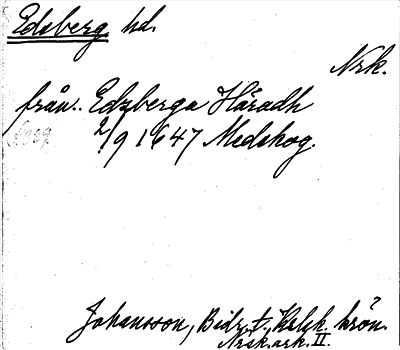 Edsberg hd.
Nrk.
från.. Edzberga Häradh
2/9 1647 Medskog.
Johansson, Bidr. t. Kelsk. krön.
Nrsk. ark. II.